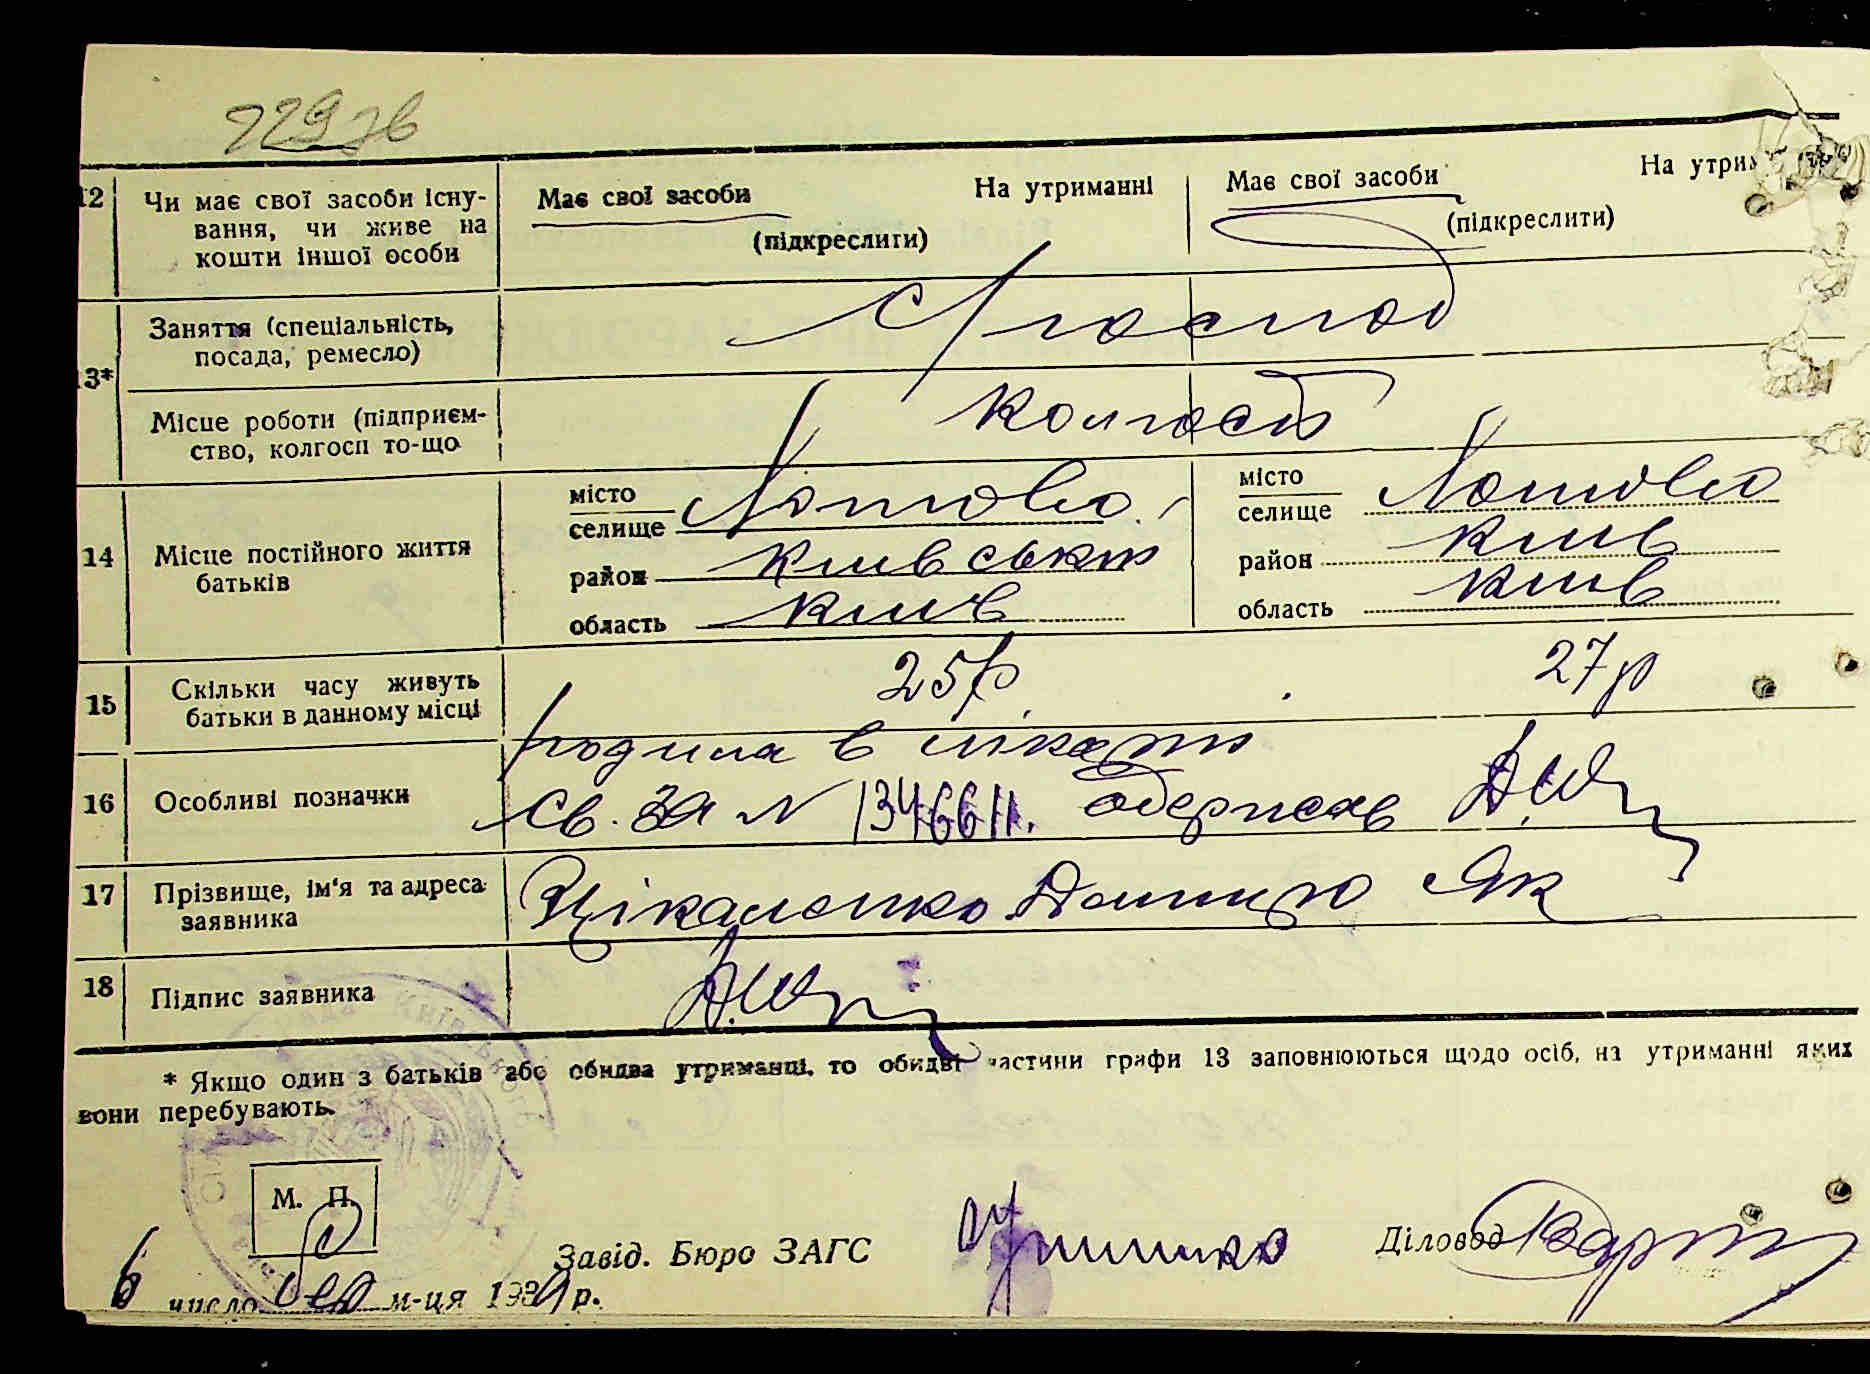 729 зв
12 Чи має свої засоби існу-
вання, чи живе на
кошти іншої особи
Має свої засоби На утриманні
(підкреслити)
Має свої засоби На утрим
(підкреслити)
13* Заняття (спеціальність,
посада, ремесло)
Місце роботи (підприєм-
ство, колгосп то-що
колгосп
14 Місце постійного життя
батьків
місто
селище
район Київськ
область Київ
місто
селище
район Київ
область Київ
15 Скільки часу живуть
батьки в данному місці
25 р. 27 р
16 Особливі позначки
родила в лікарні
св. за N 1346611. одержав
17 Прізвище, ім'я та адреса
заявника
Цікаленко Данило Як
18 Підпис заявника
* Якщо один з батьків або обидва утриманці, то обидві частини графи 13 заповнюються щодо осіб, на утриманні яких
вони перебувають.
М. П.
Завід. Бюро ЗАГС
Діловод
6 число м-ця 193 р.